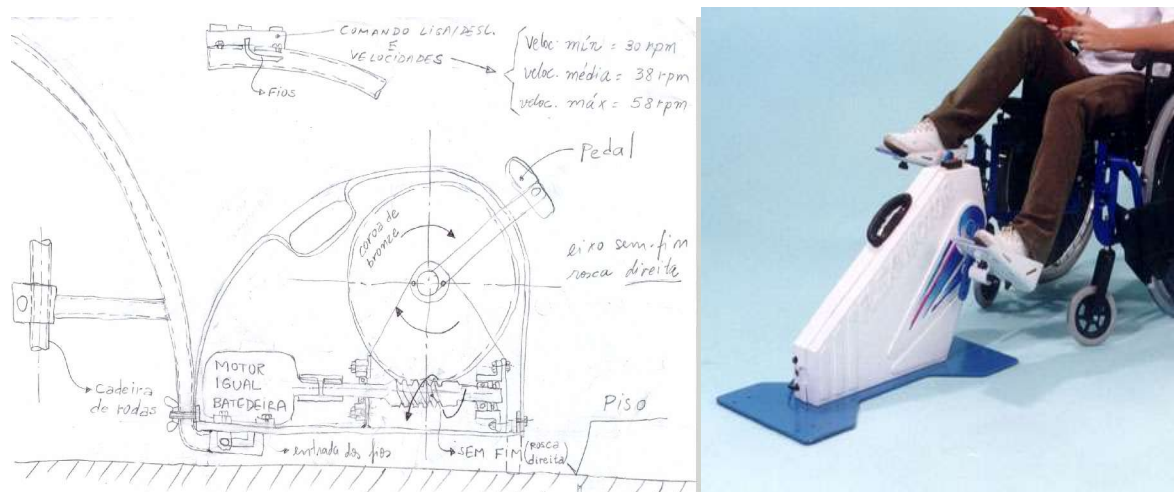 COMANDO LIGA/DESL.
E
VELOCIDADES
FIOS
Veloc. mín = 30 rpm
veloc. média = 38 rpm
veloc. máx = 58 rpm
Pedal
coroa de
bronze
eixo sem-fim
rosca direita
MOTOR
IGUAL
BATEDEIRA
Cadeira
de rodas
entrada dos fios
SEM FIM (rosca
direita)
Piso